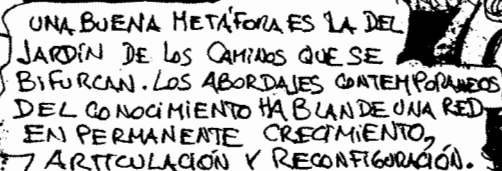 UNA BUENA METÁFORA ES LA DEL
JARDÍN DE LOS CAMINOS QUE SE
BIFURCAN. LOS ABORDAJES CONTEMPORANEOS
DEL CONOCIMIENTO HABLAN DE UNA RED
EN PERMANENTE CRECIMIENTO,
ARTICULACIÓN Y RECONFIGURACIÓN.